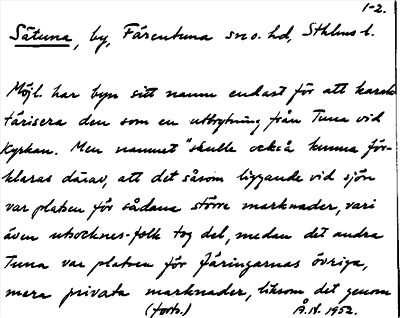 1-2.
Sätuna, by, Färentuna sn o. hd, Sthlms l.
Möjl. har byn sitt namn endast för att karak-
tärisera den som en utbrytning från Tuna vid
Kyrkan. Men namnet "skulle också kunna för-
klaras därav, att det såsom liggande vid sjön
var platsen för sådana större marknader, vari
även utsocknes-folk tog del, medan det andra
Tuna var platsen för Färingarnas övriga,
mera privata marknader, liksom det genom
(forts.) Å.N. 1952.